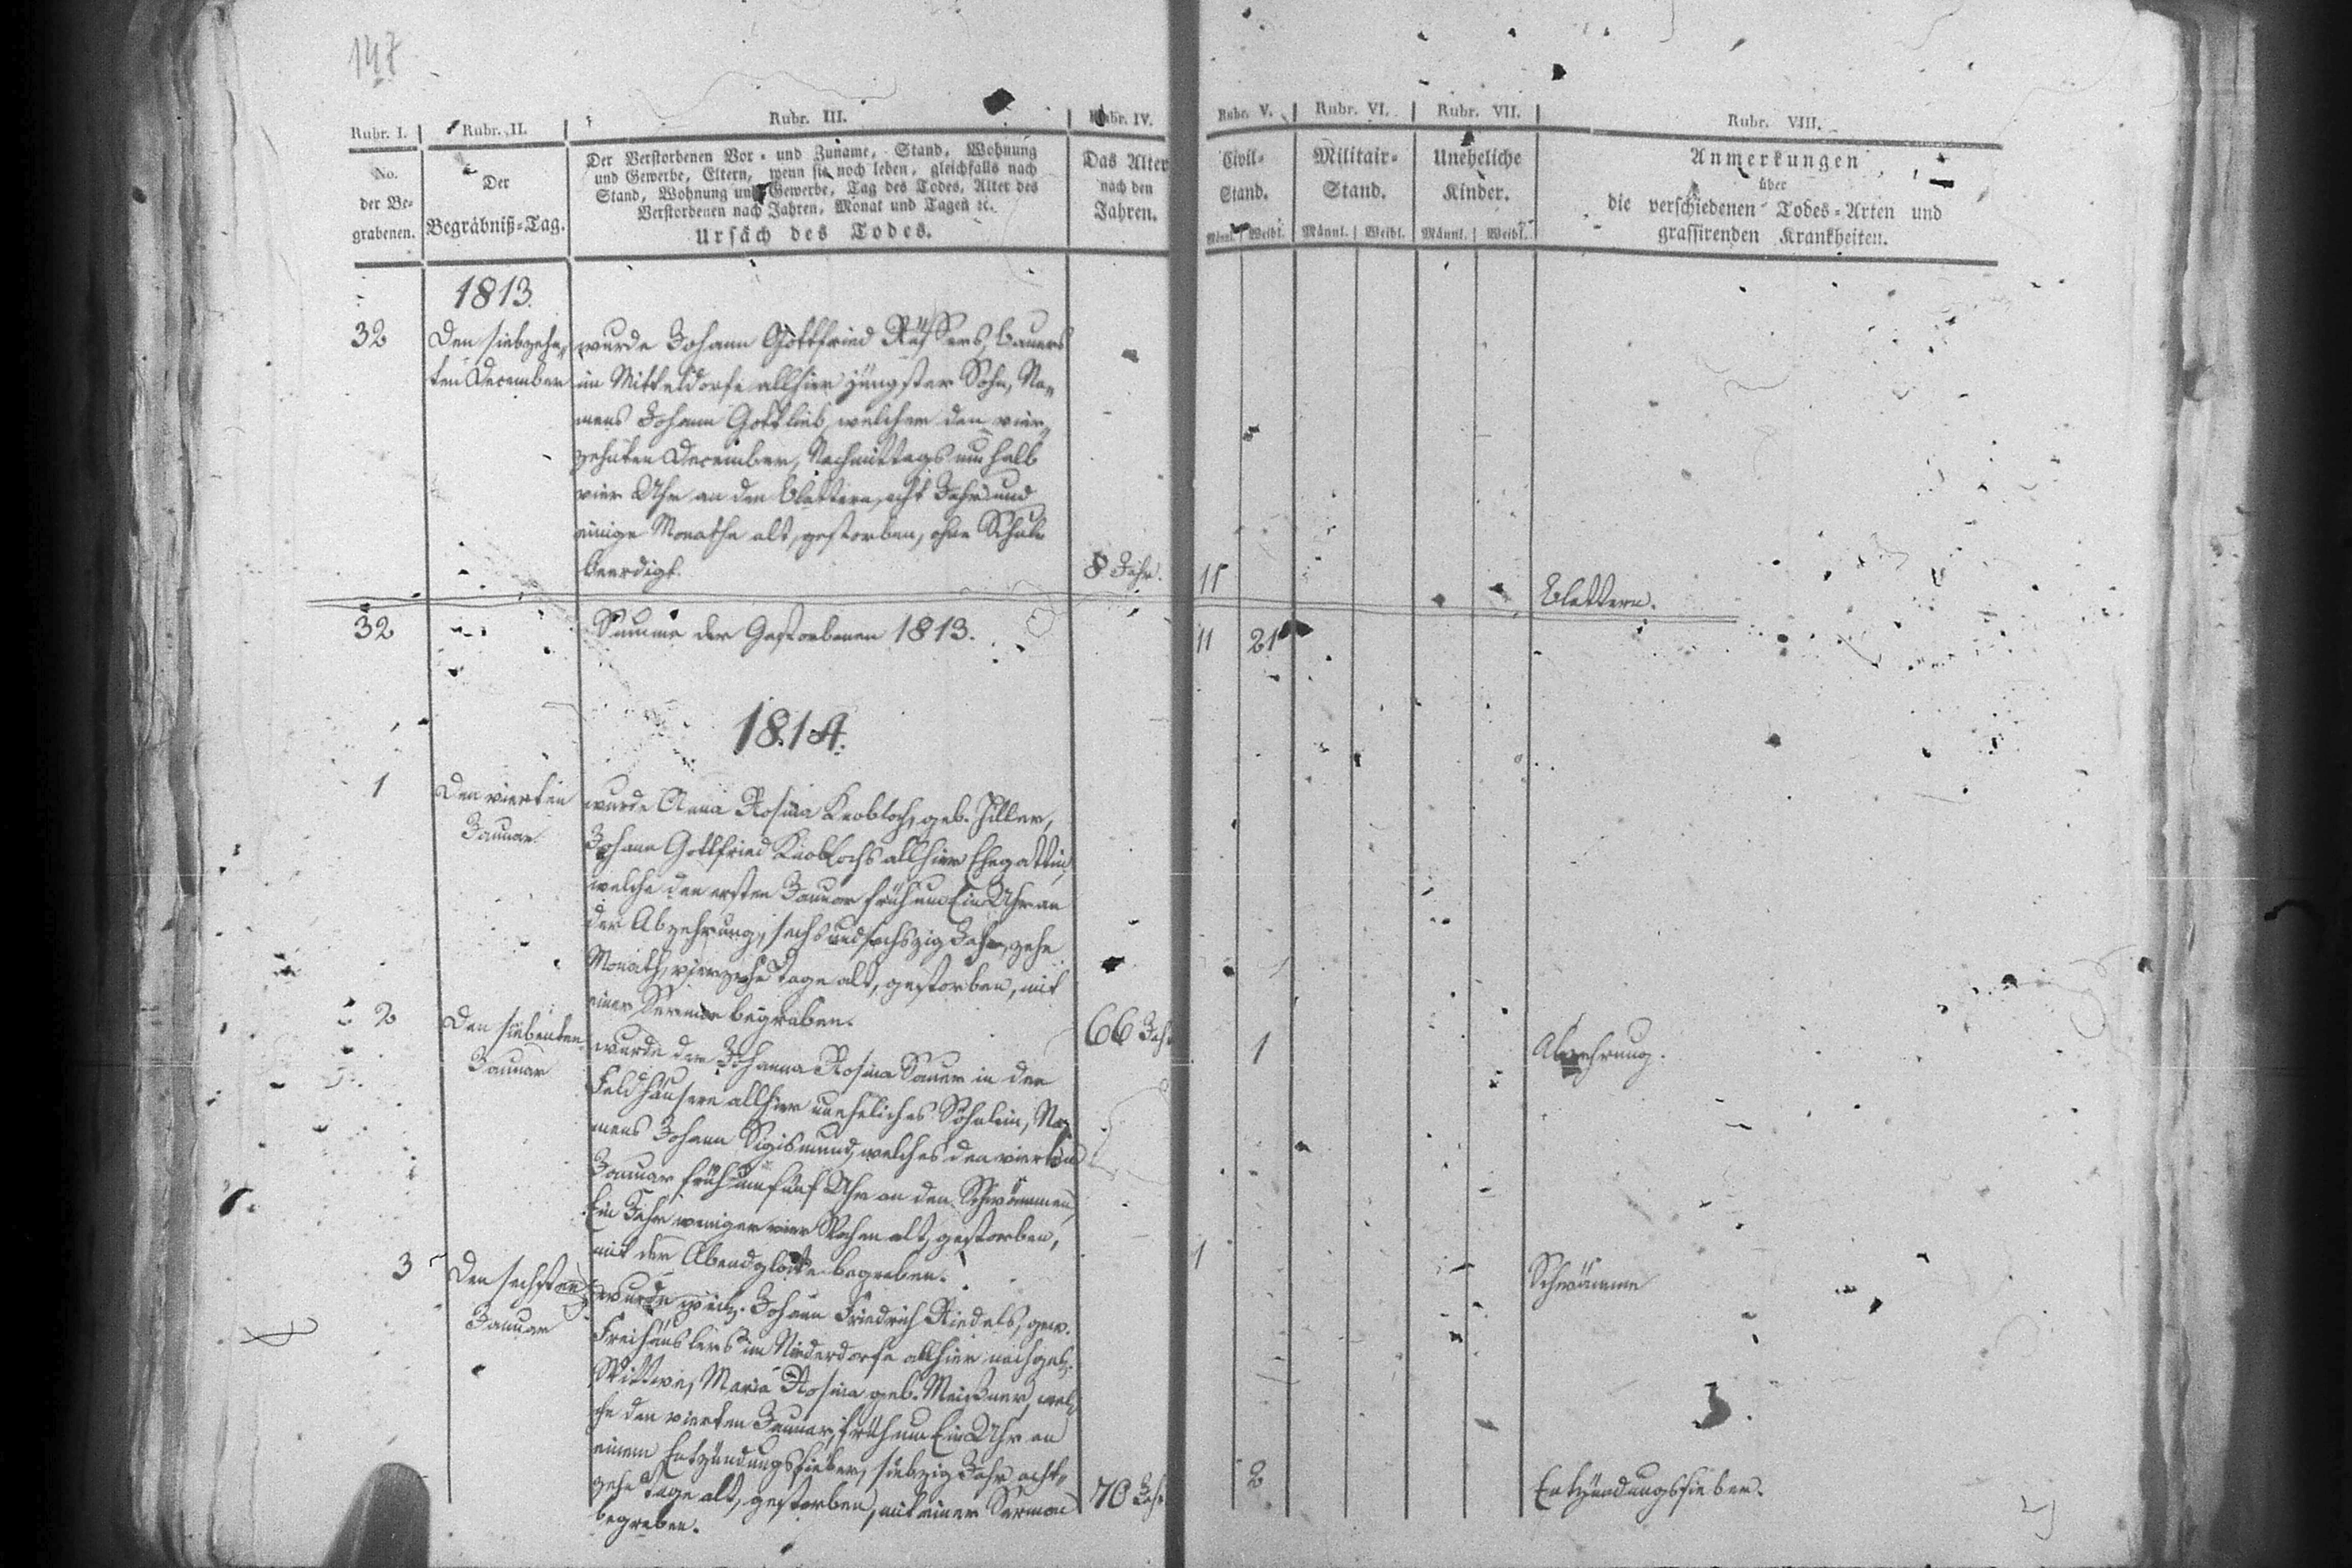 147
Rubr. I. Rubr. II. Rubr. III. Rubr. IV. Rubr. V. Rubr. VI. Rubr. VII. Rubr. VIII.
No.
der Be-
grabenen.
Der
Begräbniß-Tag.
Der Verstorbenen Vor- und Zuname, Stand, Wohnung
und Gewerbe, Eltern, wenn sie noch leben, gleichfalls nach
Stand, Wohnung und Gewerbe, Tag des Todes, Alter des
Verstorbenen nach Jahren, Monat und Tagen ꝛc.
Ursach des Todes.
Das Alter
nach den
Jahren.
Civil-
Stand.
Männl. Weibl.
Militair-
Stand.
Männl. Weibl.
Uneheliche
Kinder.
Männl. Weibl.
Anmerkungen
über
die verschiedenen Todes-Arten und
grassirenden Krankheiten.
1813.
32
Den siebzehn-
ten December
wurde Johann Gottfried Bauers
im Mitteldorfe allhier jüngster Sohn, Na-
mens Johann Gottlieb, welcher den vier-
zehnten December, Nachmittags um halb
vier Uhr an den Blattern, acht Jahr und
einige Monathe alt, gestorben, ohne Schule
beerdigt.
8 Jahr.
11
Blattern.
32 Summe der Gestorbenen 1813. 11 21
1814.
1
Den vierten
Januar
wurde Anna Rosina Knobloch, geb. Hiller,
Johann Gottfried Knoblochs allhier Ehegattin,
welche den ersten Januar früh um Ein Uhr an
der Abzehrung, sechs und sechszig Jahr, zehn
Monath, vierzehn Tage alt, gestorben, mit
einer Sermon begraben.
66 Jahr
1
Abzehrung.
2
Den siebenten
Januar
wurde der Johanna Rosina Sauer in den
Feldhäusern allhier uneheliches Söhnlein, Na-
mens Johann Sigismund, welches den vierten
Januar früh um fünf Uhr an den Schwämmen,
Ein Jahr weniger vier Wochen alt, gestorben,
mit der Abendglocke begraben.
1
Schwämme
3
Den sechsten
Januar
wurde weil. Johann Friedrich Riedels, gew.
Freihäuslers im Niederdorfe allhier nachgel.
Wittwe, Maria Rosina geb. Meißner, wel-
che den vierten Januar, früh um Ein Uhr an
einem Entzündungsfieber, siebzig Jahr, acht-
zehn Tage alt, gestorben, mit einer Sermon
begraben.
70 Jahr
2
Entzündungsfieber.